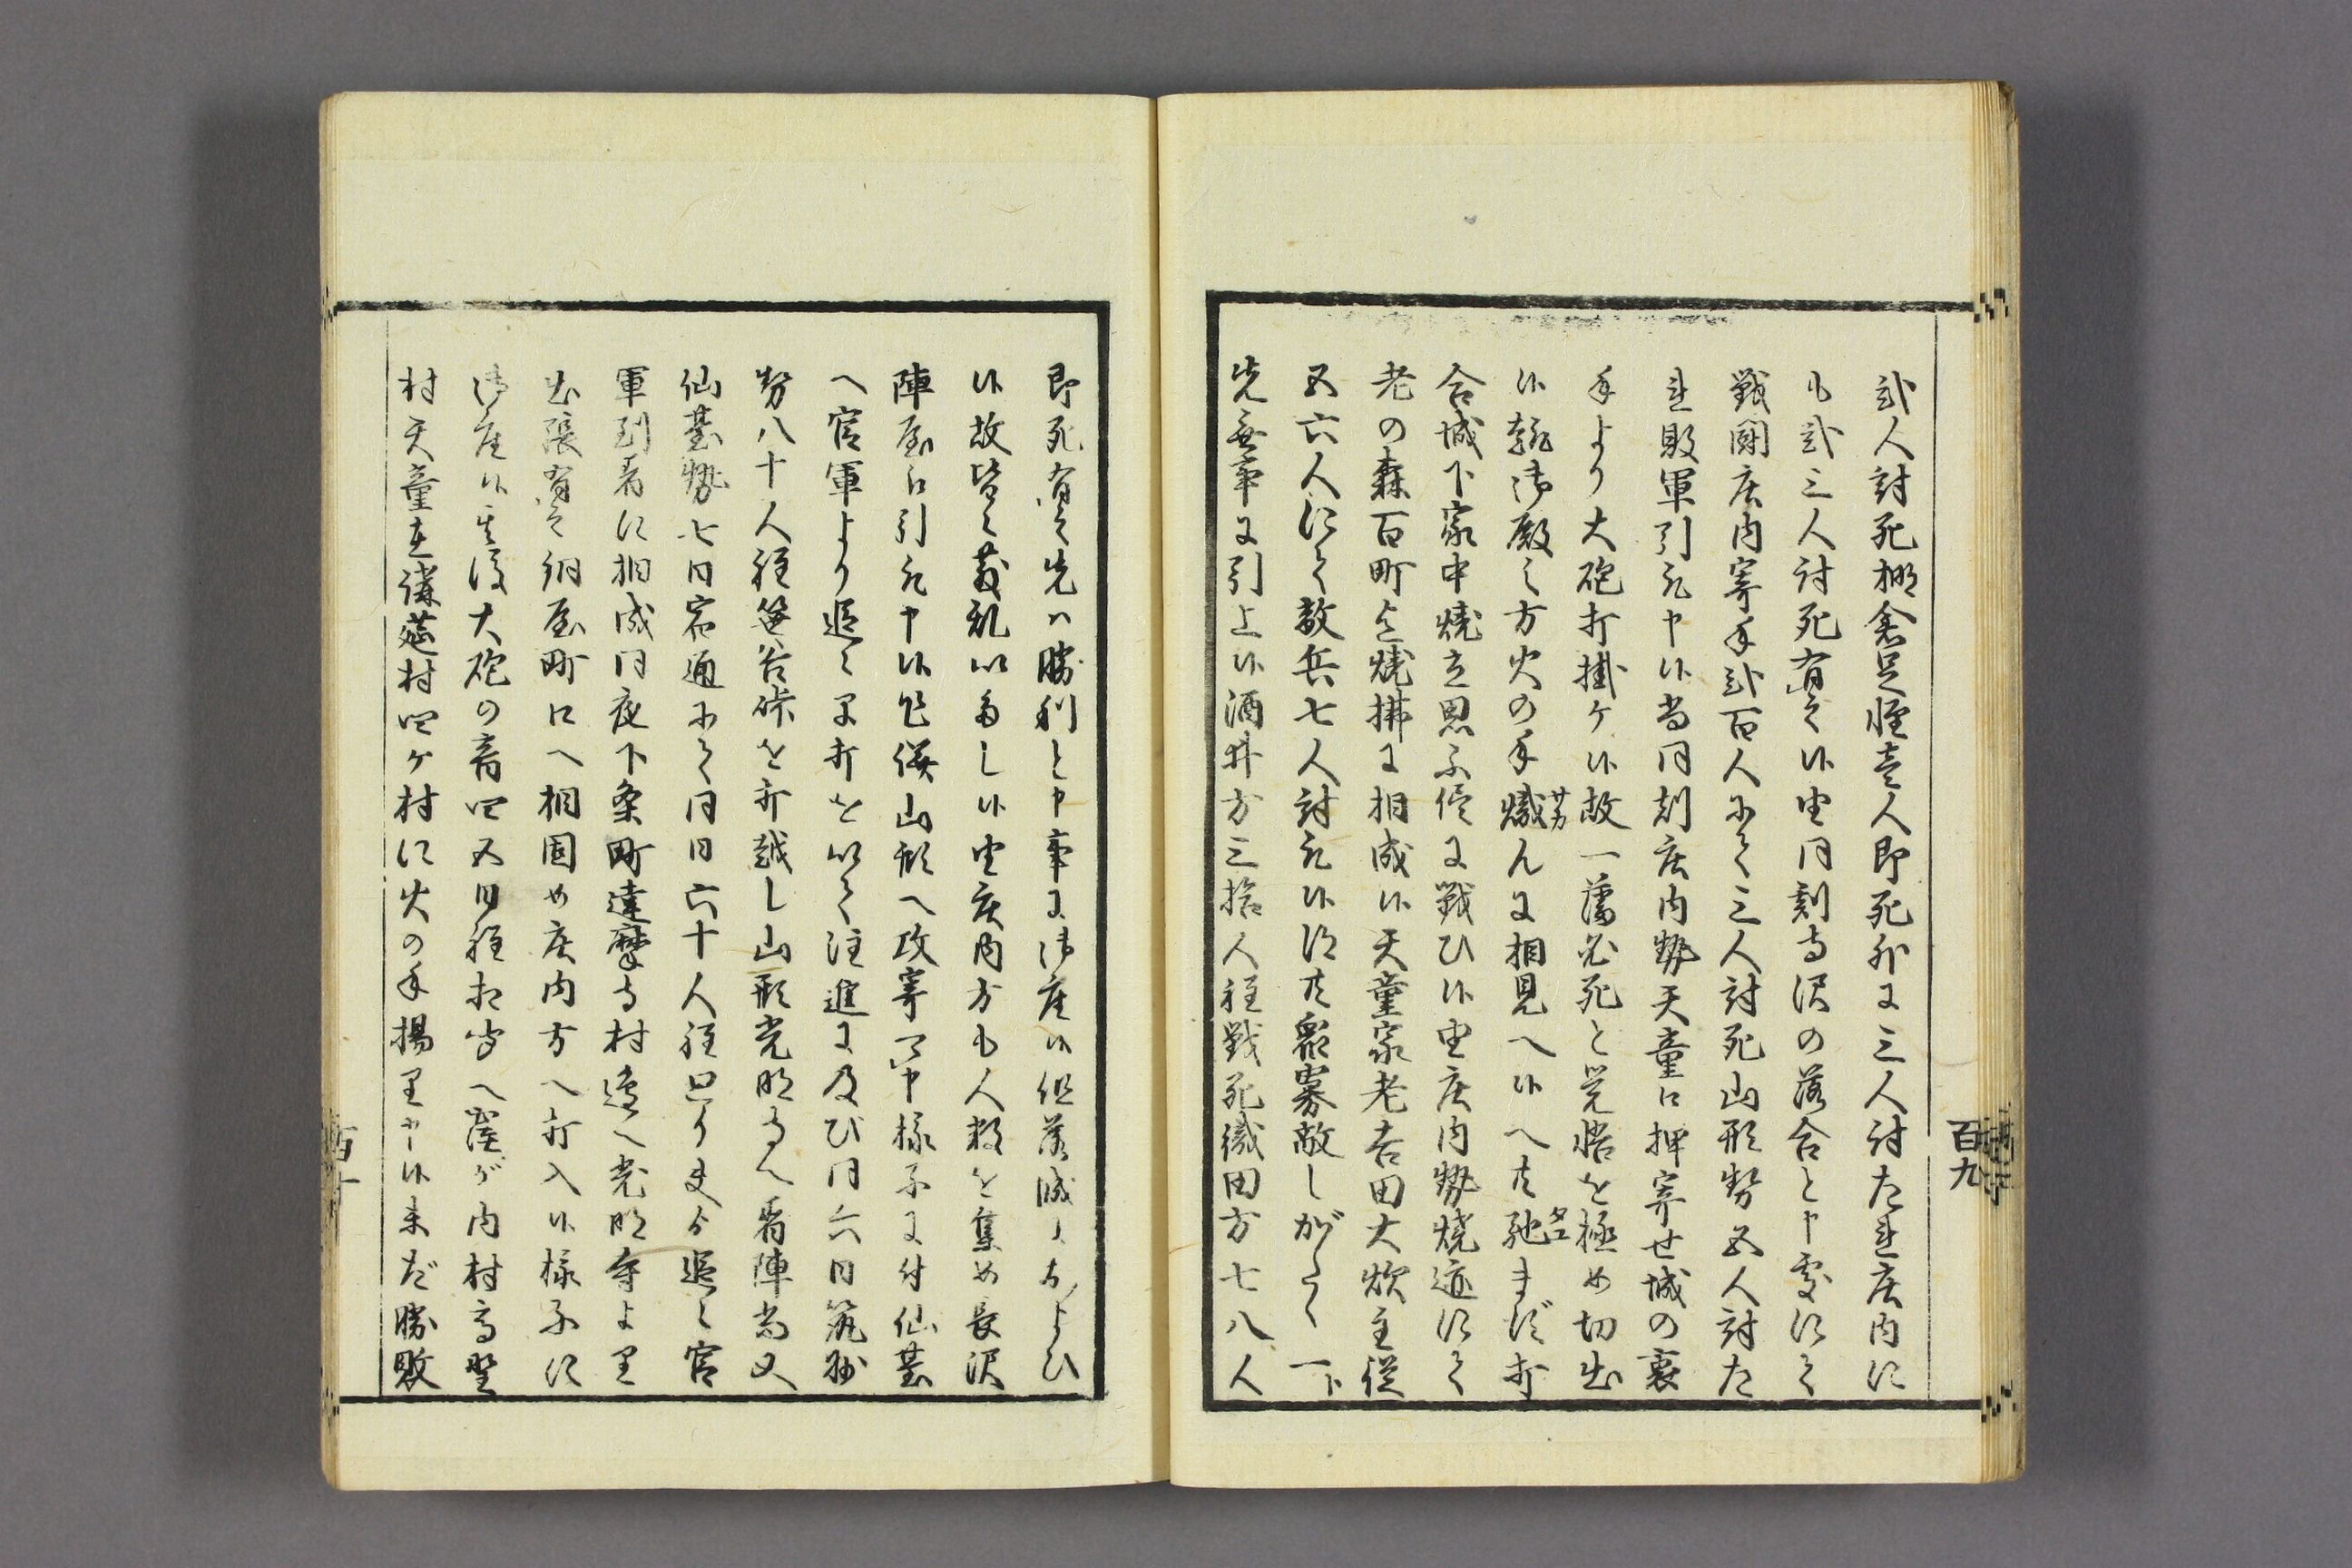 弐人討死棚倉足軽壱人即死外ニ三人討たれ庄内に
も弐三人討死有之候由同刻寺沢の落合と申処にて
戦闘庄内寄手弐百人にて三人討死山形勢五人討た
れ敗軍引取申候当同刻庄内勢天童江押寄せ城の裏
手より大砲打掛ケ候故一藩必死と覚悟を極め切出
候処御殿之方火の手熾んニ相見へ候へ共弛まず打
合城下家中焼立思ふ侭ニ戦ひ候由庄内勢焼道にて
老の森百町を焼拂ニ相成候天童家老吉田大炊主従
五六人にて教兵七人討取候得共衆寡敵しがたく一ト
先無事ニ引上候酒井方三拾人程戦死織田方七八人
百九
即死有之先ハ勝利と申事ニ御座候但落城ニおよひ
候故皆々散乱いたし候由庄内方も人数を集め長沢
陣屋江引取申候乍併山形へ攻寄可申様子ニ付仙䑓
へ官軍より追々早打を以て注進ニ及び同六日筑州
勢八十人程笹谷峠を打越し山形光明寺へ着陣尚又
仙䑓勢七日宿通にて同日六十人程繰り夫より追々官
軍到着に相成同夜下条町達摩寺村邊へ光明寺より
出張有之銅屋町口へ相固め庄内方へ打入候様子に
御座候其後大砲の音四五日程相聞へ窪ガ内村高野
村天童在蓮莚村四ケ村に火の手揚り申候未だ勝敗
百十